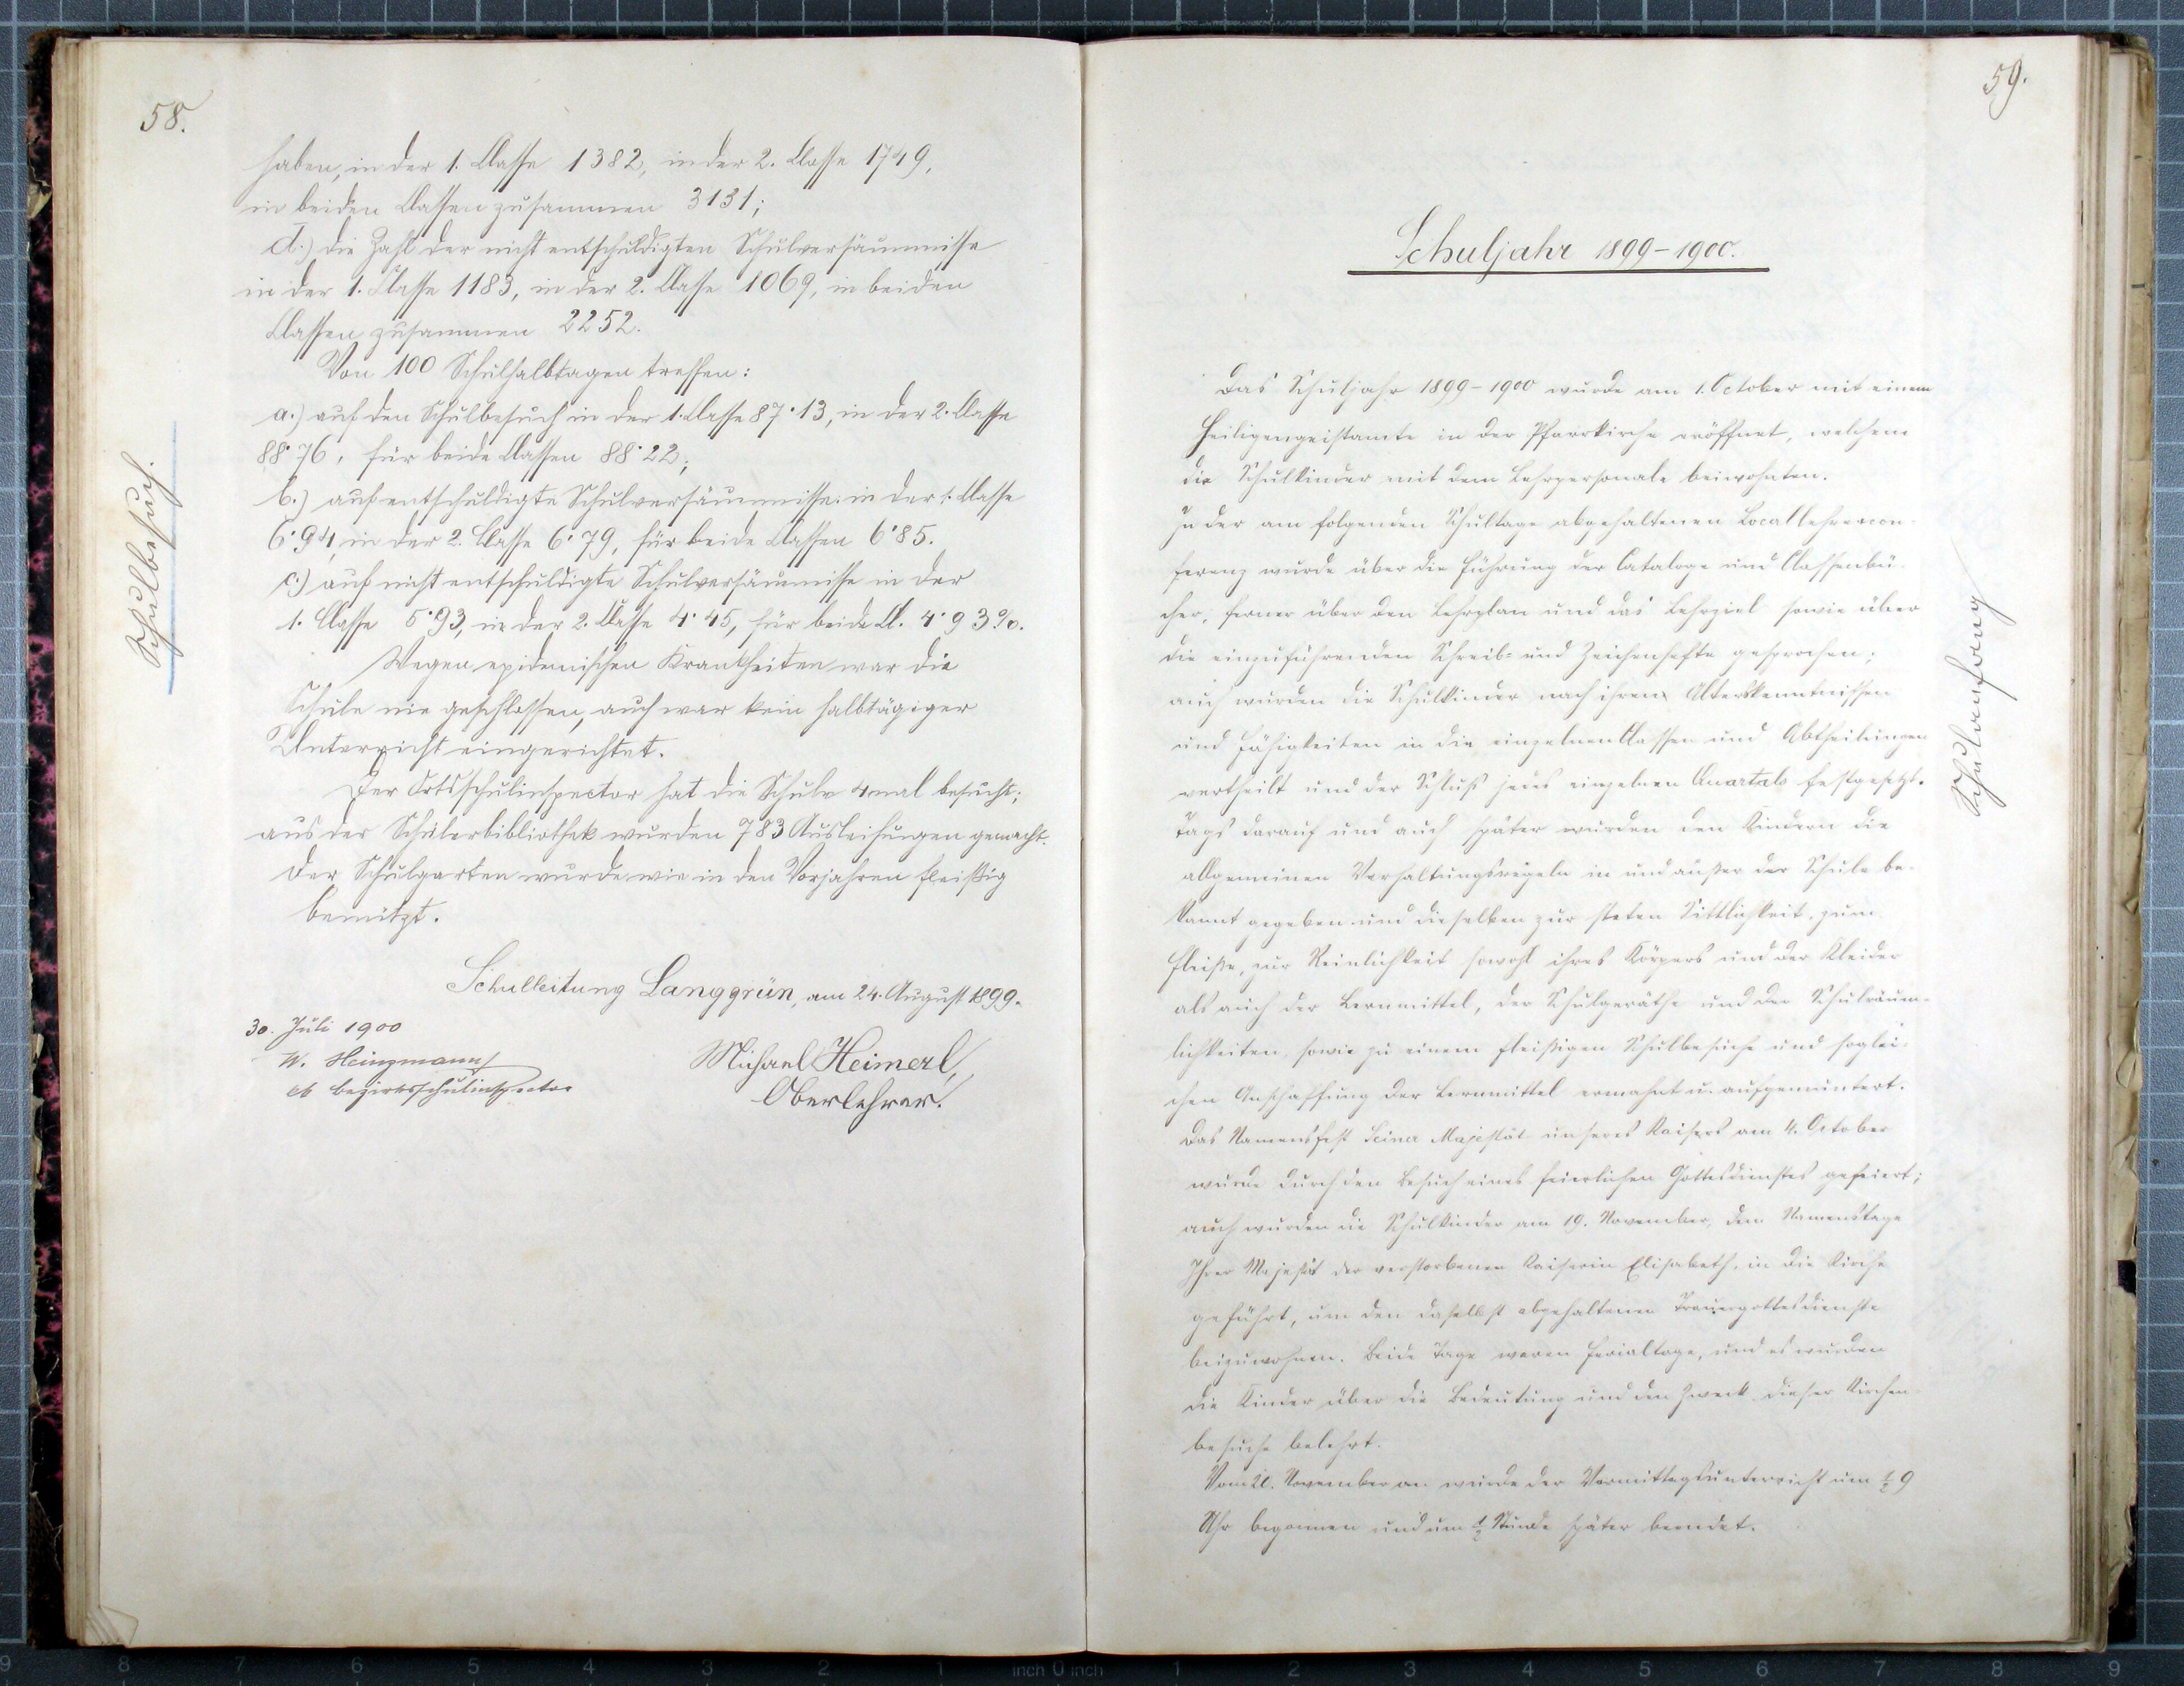 58.
haben, in der 1. Classe 1382, in der 2. Classe 1749,
in beiden Classen zusammen 3131;
d.) die Zahl der nicht entschuldigten Schulversäumnisse
in der 1. Classe 1183, in der 2. Classe 1069, in beiden
Classen zusammen 2252.
Von 100 Schulhalbtagen treffen:
a.) auf den Schulbesuch in der 1. Classe 87·13, in der 2. Classe
88·76, für beide Classen 88·22;
b.) auf entschuldigte Schulversäumnisse: in der 1. Classe
6·94, in der 2. Classe 6·79, für beide Classen 6·85.
c.) auf nicht entschuldigte Schulversäumnisse in der
1. Classe 5·93, in der 2. Classe 4·45, für beide Cl. 4·93%.
Wegen epidemischen Krankheiten war die
Schule nie geschlossen, auch war kein halbtägiger
Unterricht eingerichtet.
Der Ortsschulinspector hat die Schule 4mal besucht;
aus der Schülerbibliothek wurden 783 Ausleihungen gemacht.
Der Schulgarten wurde wie in den Vorjahren fleißig
benützt.
Schulleitung Langgrün, am 24. August 1899.
30. Juli 1900
W. Heinzmann
kk Bezirksschulinspector
Michael Heimerl,
Oberlehrer.
Schulbesuch.
59.
Schuljahr 1899-1900.
Das Schuljahr 1899-1900 wurde am 1. October mit einem
Heiligengeistamte in der Pfarrkirche eröffnet, welchem
die Schulkinder mit dem Lehrpersonale beiwohnten.
In der am folgenden Schultage abgehaltenen Locallehrercon-
ferenz wurde über die Führung der Cataloge und Classenbü-
cher, ferner über den Lehrplan und das Lehrziel sowie über
die einzuführenden Schreib- und Zeichenhefte gesprochen;
auch wurden die Schulkinder nach ihren Alterskenntnissen
und Fähigkeiten in die einzelnen Classen und Abtheilungen
vertheilt und der Schluß jedes einzelnen Quartals festgesetzt.
Tags darauf und auch später wurden den Kindern die
allgemeinen Verhaltungsregeln in und außer der Schule be-
kannt gegeben und dieselben zur steten Sittlichkeit, zum
Fleiße, zur Reinlichkeit sowohl ihres Körpers und der Kleider
als auch der Lernmittel, der Schulgeräthe und der Schulräum-
lichkeiten, sowie zu einem fleißigen Schulbesuche und soglei-
chen Anschaffung der Lernmittel ermahnt u. aufgemuntert.
Das Namensfest Seiner Majestät unseres Kaisers am 4. October
wurde durch den Besuch eines feierlichen Gottesdienstes gefeiert;
auch wurden die Schulkinder am 19. November, dem Namenstage
Ihrer Majestät der verstorbenen Kaiserin Elisabeth, in die Kirche
geführt, um dem daselbst abgehaltenen Trauergottesdienste
beizuwohnen. Beide Tage waren Ferialtage, und es wurden
die Kinder über die Bedeutung und den Zweck dieser Kirchen-
besuche belehrt.
Vom 20. November an wurde der Vormittagsunterricht um ½ 9
Uhr begonnen und um ½ Stunde später beendet.
Schulanfang